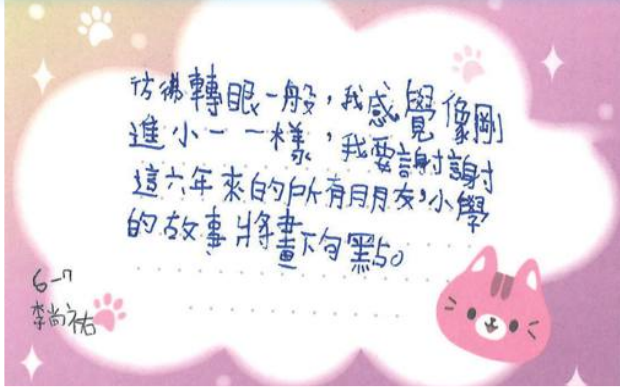 彷彿轉眼一般，我感覺像剛
進小一一樣，我要謝謝
這六年來的所有朋友，小學
的故事將畫下句點。
6-7
李尚祐